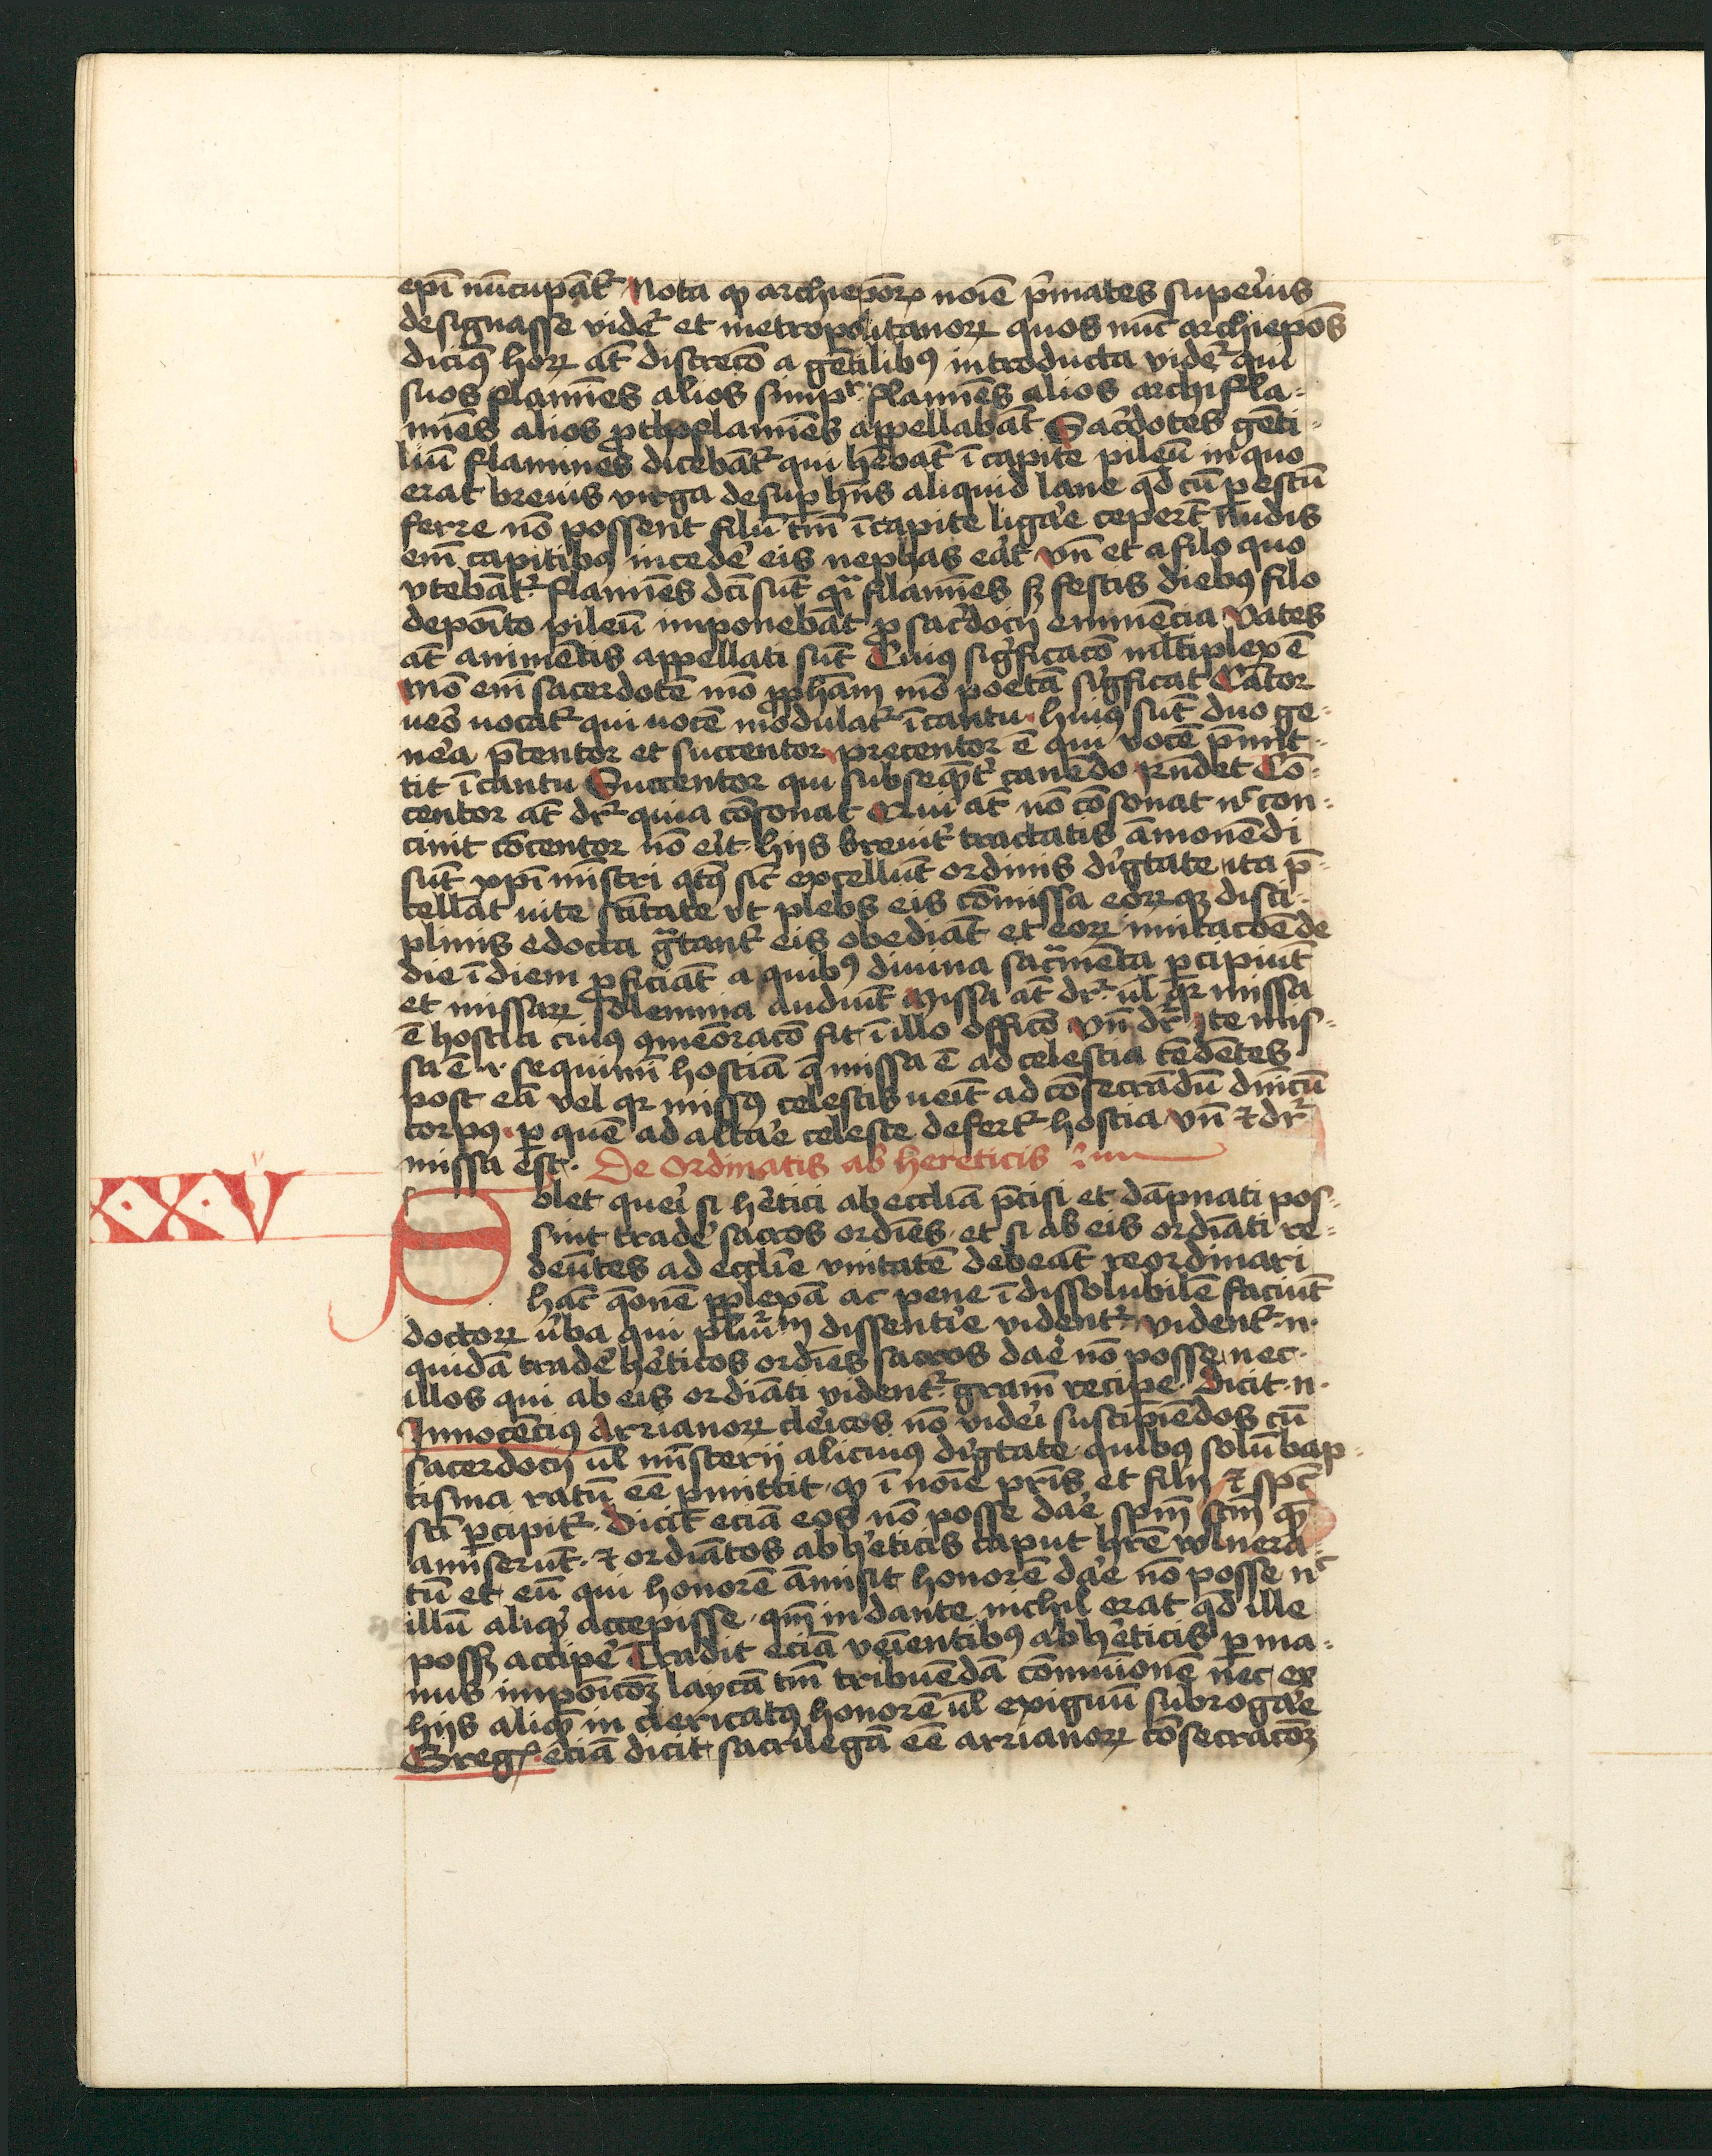 ep̄i nūcupāt᷑ Nota ꝙ archiep̄oꝝ noīe p̄mates supeꝰius
designasse vider̄ et metropolitanoꝝ quos nūc archiep̄os
dicimꝰ hoꝝ at̄ discrecō a gētilibꝰ introducta vider̄ qui
suos flamīes alios simpꝉr flamīes alios archifla-
mīes alios ꝓthoflamīes appellabāt Sac̄dotes gēti-
liū flamines dicebāt᷑ qui hēbāt ī capite pileū in quo
erat breuis virga desuꝑ hn̄s aliquid lane qd̄ cū ꝑ estū
ferre nō possent filū tm̄ ī capite ligar̄e ceper̄t nudis
em̄ capitibꝰ inceder̄e eis nephas er̄at vn̄ et a filo quo
vtebāt᷑ flamīes dc̄i sūt qͣi filamīes sꝫ festis diebꝰ filo
depoīto pileū imponebāt ꝓ sac̄docij eminēcia Vates
at̄ a vi mētis appellati sūt Cuiꝰ siḡficacō ml̄tiplex ē
mō em̄ sacerdotē mō ꝓph̄am mō poetā siḡficat Cātor
ver̄o uocat᷑ qui uocē modulat᷑ ī cantu huiꝰ sūt duo ge-
ner̄a p̄centor et succentor precentor ē qui vocē p̄mit-
tit ī cantu Succentor qui subseqn̄t᷑ canēdo rn̄det Cō-
centor at̄ dr̄ quia cōsonat Qui at̄ nō cōsonat nͨ con-
cinit cōcentor nō er̄it hijs breuit᷑ tractatis āmonēdi
sūt xp̄i mīstri qtꝰ sic̄ excellūt ordinis diḡtate ita p̄-
cellāt uite sc̄itate vt plebs eis cōmissa eoꝝqꝫ disci-
plinis edocta gͣtant᷑ eis obediāt et eoꝝ imitacōe de
die ī diem ꝓficiāt a quibꝰ diuina sacͣmēta ꝑcipiūt
et missaꝝ solemnia audiūt Missa at̄ dr̄ ul̄ qꝛ missa
ē hostia cuiꝰ ꝯmeōracō fit ī illo officō vn̄ dr̄ Ite mis-
sa ē .i. sequimī hostiā q̄ missa ē ad celestia tēdētes
post eā vel qꝛ missꝰ celestis ueīt ad cōsecrādū dn̄icū
corpꝰ ꝑ quē ad altar̄e celeste defert᷑ hostia vn̄ ⁊ dr̄
missa est. De ordinatis ab hereticis
XXV
Solet quer̄i si her̄etici ab eccl̄ia p̄cisi et dāpnati pos-
sint trader̄e sacros ordīes et si ab eis ordīati re-
deūtes ad eccl̄ie vnitatē debeāt reordinari
hāc qōnē ꝑplexā ac pene īdissolubilē faciūt
doctoꝝ ūba qui plūrimū dissentir̄e vident᷑ vident᷑ .n.
quidā trader̄e her̄eticos ordīes sacros dar̄e nō posse nec
illos qui ab eis ordīati vident᷑ grām reciper̄e. Dicit .n.
Innocēciꝰ Arrianoꝝ cler̄icos nō vider̄i suscipiēdos cū
sacerdocij ul̄ mīsterij alicuiꝰ diḡtate quibꝰ solū bap-
tisma ratū eē ꝑmittit ꝙ ī noīe pr̄is et filij ⁊ sp̄c
sc̄i ꝑcipit᷑. Dicit eciā eos nō posse dar̄e sp̄m sc̄m qē
amiserūt. ⁊ ordīatos ab her̄eticis caput hr̄e vulnera-
tū et eū qui honorē āmisit honorē dar̄e nō posse nͨ
illū aliqd̄ accepisse. qm̄ in dante nichil erat qd̄ ille
possꝫ acciper̄e Tradit eciā veīentibꝰ ab her̄eticis ꝑ ma-
nus impoīcōꝫ laycā tm̄ tribuēdā cōmūionē nec ex
hijs aliqē in clericatꝰ honorē ul̄ exiguū subrogar̄e
Greg᷑. eciā dicit sacrilegā eē arrianoꝝ cōsecracōꝫ